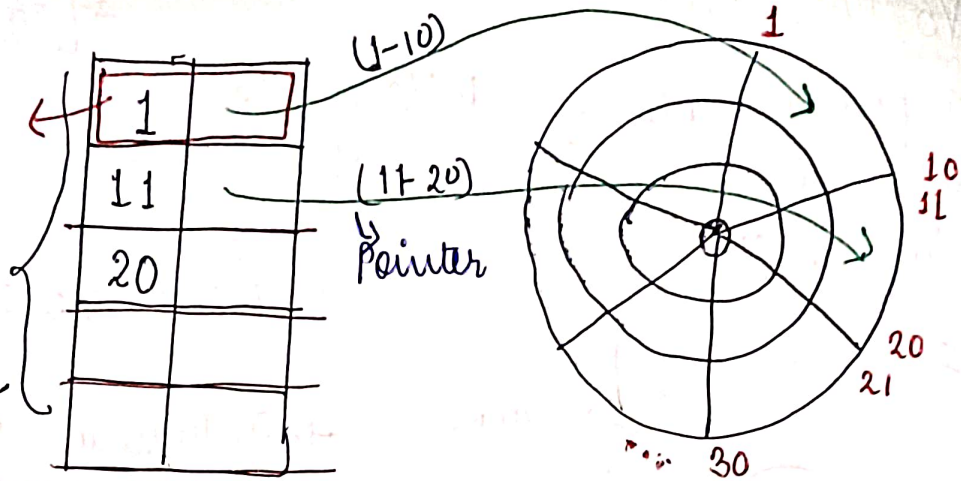 1
(1-10)
1
11
(11-20)
Pointer
20
10
11
20
21
30